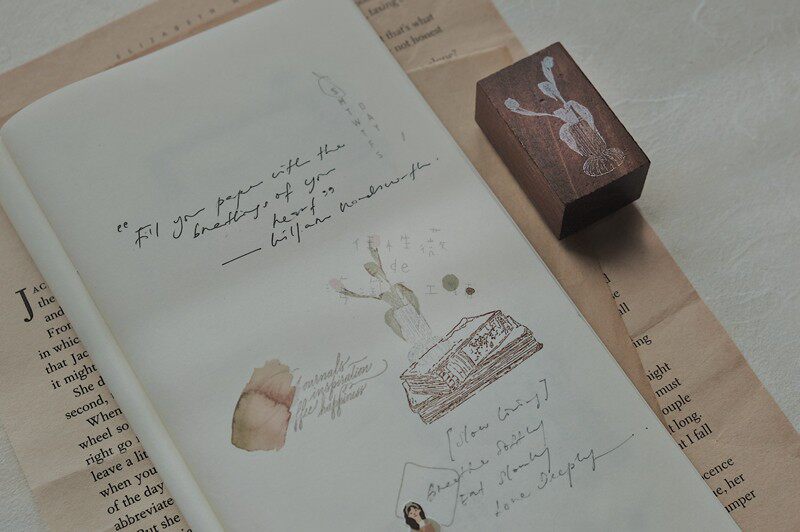 ELIZABETH
“Fill your paper with the
breathings of your
heart”
— William Wordsworth.
de
工
inspiration
happiness
[Slow living]
Breathe Softly
Eat Slowly
Love Deeply
that's what
not honest
JAC
the
and
From
in which
that Jac
it might
She d
second,
When
wheel so
right go
leave a lit
when you
of the day
abbreviate
But she
night
must
couple
t long.
I fall
ocence
e, her
umper